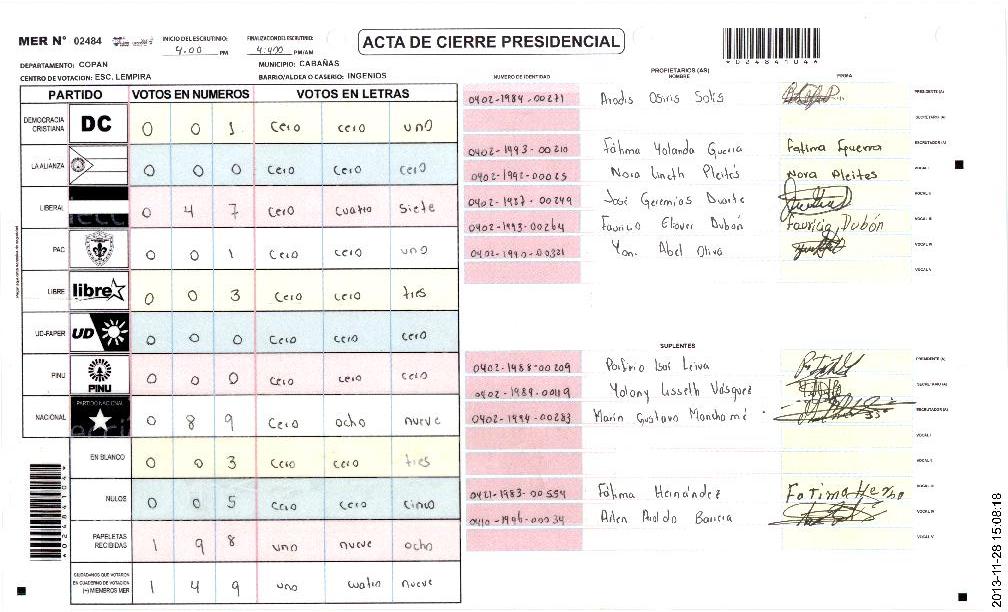 MER N° 02484
INICIO DEL ESCRUTINIO: 4:00 PM
FINALIZACION DEL ESCRUTINIO: PM/AM
ACTA DE CIERRE PRESIDENCIAL
*02484104*
DEPARTAMENTO: COPAN
MUNICIPIO: CABAÑAS
CENTRO DE VOTACION: ESC. LEMPIRA
BARRIO/ALDEA O CASERIO: INGENIOS
PARTIDO VOTOS EN NUMEROS VOTOS EN LETRAS
DEMOCRACIA CRISTIANA DC 0 0 1 cero cero uno
LA ALIANZA 0 0 0 cero cero cero
LIBERAL 0 4 7 cero cuatro siete
PAC 0 0 1 cero cero uno
LIBRE libre 0 0 3 cero cero tres
UD-FAPER UD 0 0 0 cero cero cero
PINU PINU 0 0 0 cero cero cero
NACIONAL PARTIDO NACIONAL 0 8 9 cero ocho nueve
EN BLANCO 0 0 3 cero cero tres
NULOS 0 0 5 cero cero cinco
PAPELETAS RECIBIDAS 1 9 8 uno nueve ocho
CIUDADANOS QUE VOTARON EN CUADERNO DE VOTACION (+) MIEMBROS MER 1 4 9 uno cuatro nueve
*02484104*
PROPIETARIOS (AS)
NUMERO DE IDENTIDAD NOMBRE FIRMA
0402-1984-00271 Osiris Solis PRESIDENTE (A)
SECRETARIO (A)
0402-1993-00210 Fátima Yolanda Guerra Fatima Guerra ESCRUTADOR (A)
0402-1992-00025 Nora Lineth Pleites Nora Pleites VOCAL I
0402-1987-00249 José Geremias Duarte VOCAL II
0402-1993-00264 Dubón Dubón VOCAL III
0402-1990-00321 Abel Oliva VOCAL IV
VOCAL V
SUPLENTES
0402-1988-00209 Porfirio Leiva PRESIDENTE (A)
0402-1989-00119 Yolany Lisseth Vásquez SECRETARIO (A)
0402-1994-00283 Marin Gustavo ESCRUTADOR (A)
VOCAL I
VOCAL II
0421-1983-00554 Fátima Hernández Fatima VOCAL III
0410-1996-00034 VOCAL IV
VOCAL V
2013-11-28 15:08:18